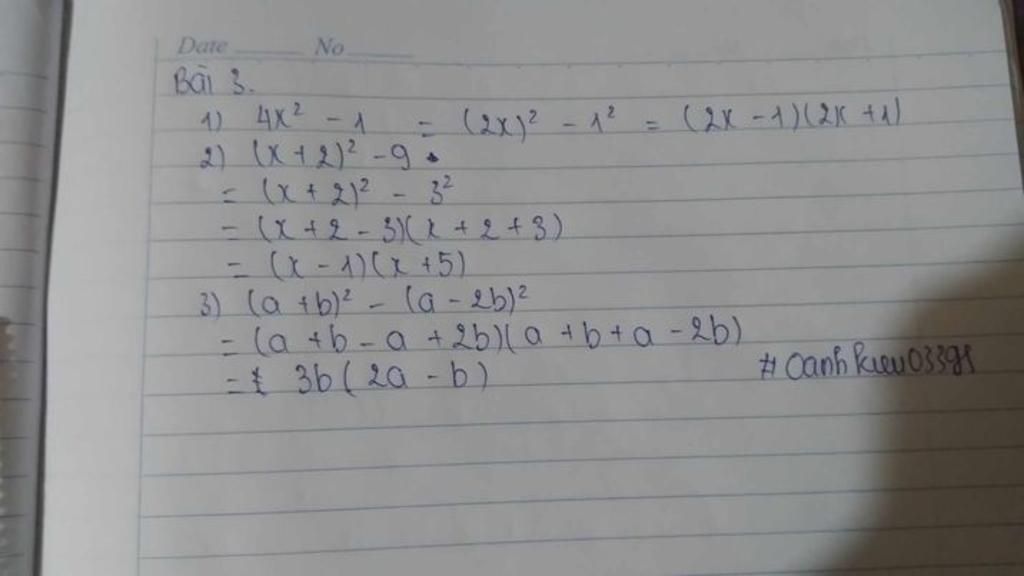 Date No
Bài 3.
1) 4x² - 1 = (2x)² - 1² = (2x - 1)(2x + 1)
2) (x + 2)² - 9
= (x + 2)² - 3²
= (x + 2 - 3)(x + 2 + 3)
= (x - 1)(x + 5)
3) (a + b)² - (a - 2b)²
= (a + b - a + 2b)(a + b + a - 2b)
= 3b(2a - b)